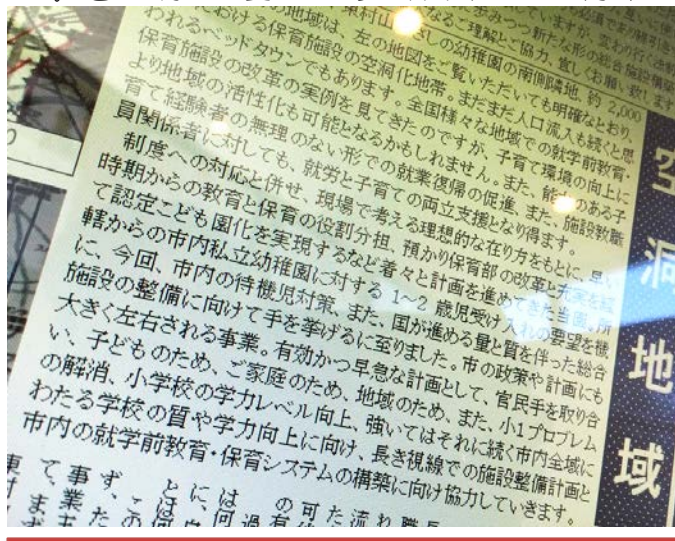 の地域は、東村山
の幼稚園の南側隣地、約 2,000
における保育施設の空洞化地帯。まだまだ人口流入も続くと思
左の地図をご覧いただいても明確なとおり、
われるベッドタウンでもあります。全国様々な地域での就学前教育・
保育施設の改革の実例を見てきたのですが、子育て環境の向上に
より地域の活性化も可能となるかもしれません。また、能力のある子
育て経験者の無理のない形での就業復帰の促進、また、施設教職
員関係者に対しても、就労と子育ての両立支援となり得ます。
制度への対応と併せ、現場で考える理想的な在り方をもとに、早い
時期からの教育と保育の役割分担、預かり保育部の改革と充実を経
て認定こども園化を実現するなど着々と計画を進めてきた当園。所
轄からの市内私立幼稚園に対する 1~2 歳児受け入れの要望を機
に、今回、市内の待機児対策、また、国が進める量と質を伴った総合
施設の整備に向けて手を挙げるに至りました。市の政策や計画にも
大きく左右される事業。有効かつ早急な計画として、官民手を取り合
い、子どものため、ご家庭のため、地域のため、また、小1プロブレム
の解消、小学校の学力レベル向上、強いてはそれに続く市内全域に
わたる学校の質や学力向上に向け、長き視線での施設整備計画と
市内の就学前教育・保育システムの構築に向け協力していきます。
空洞地域